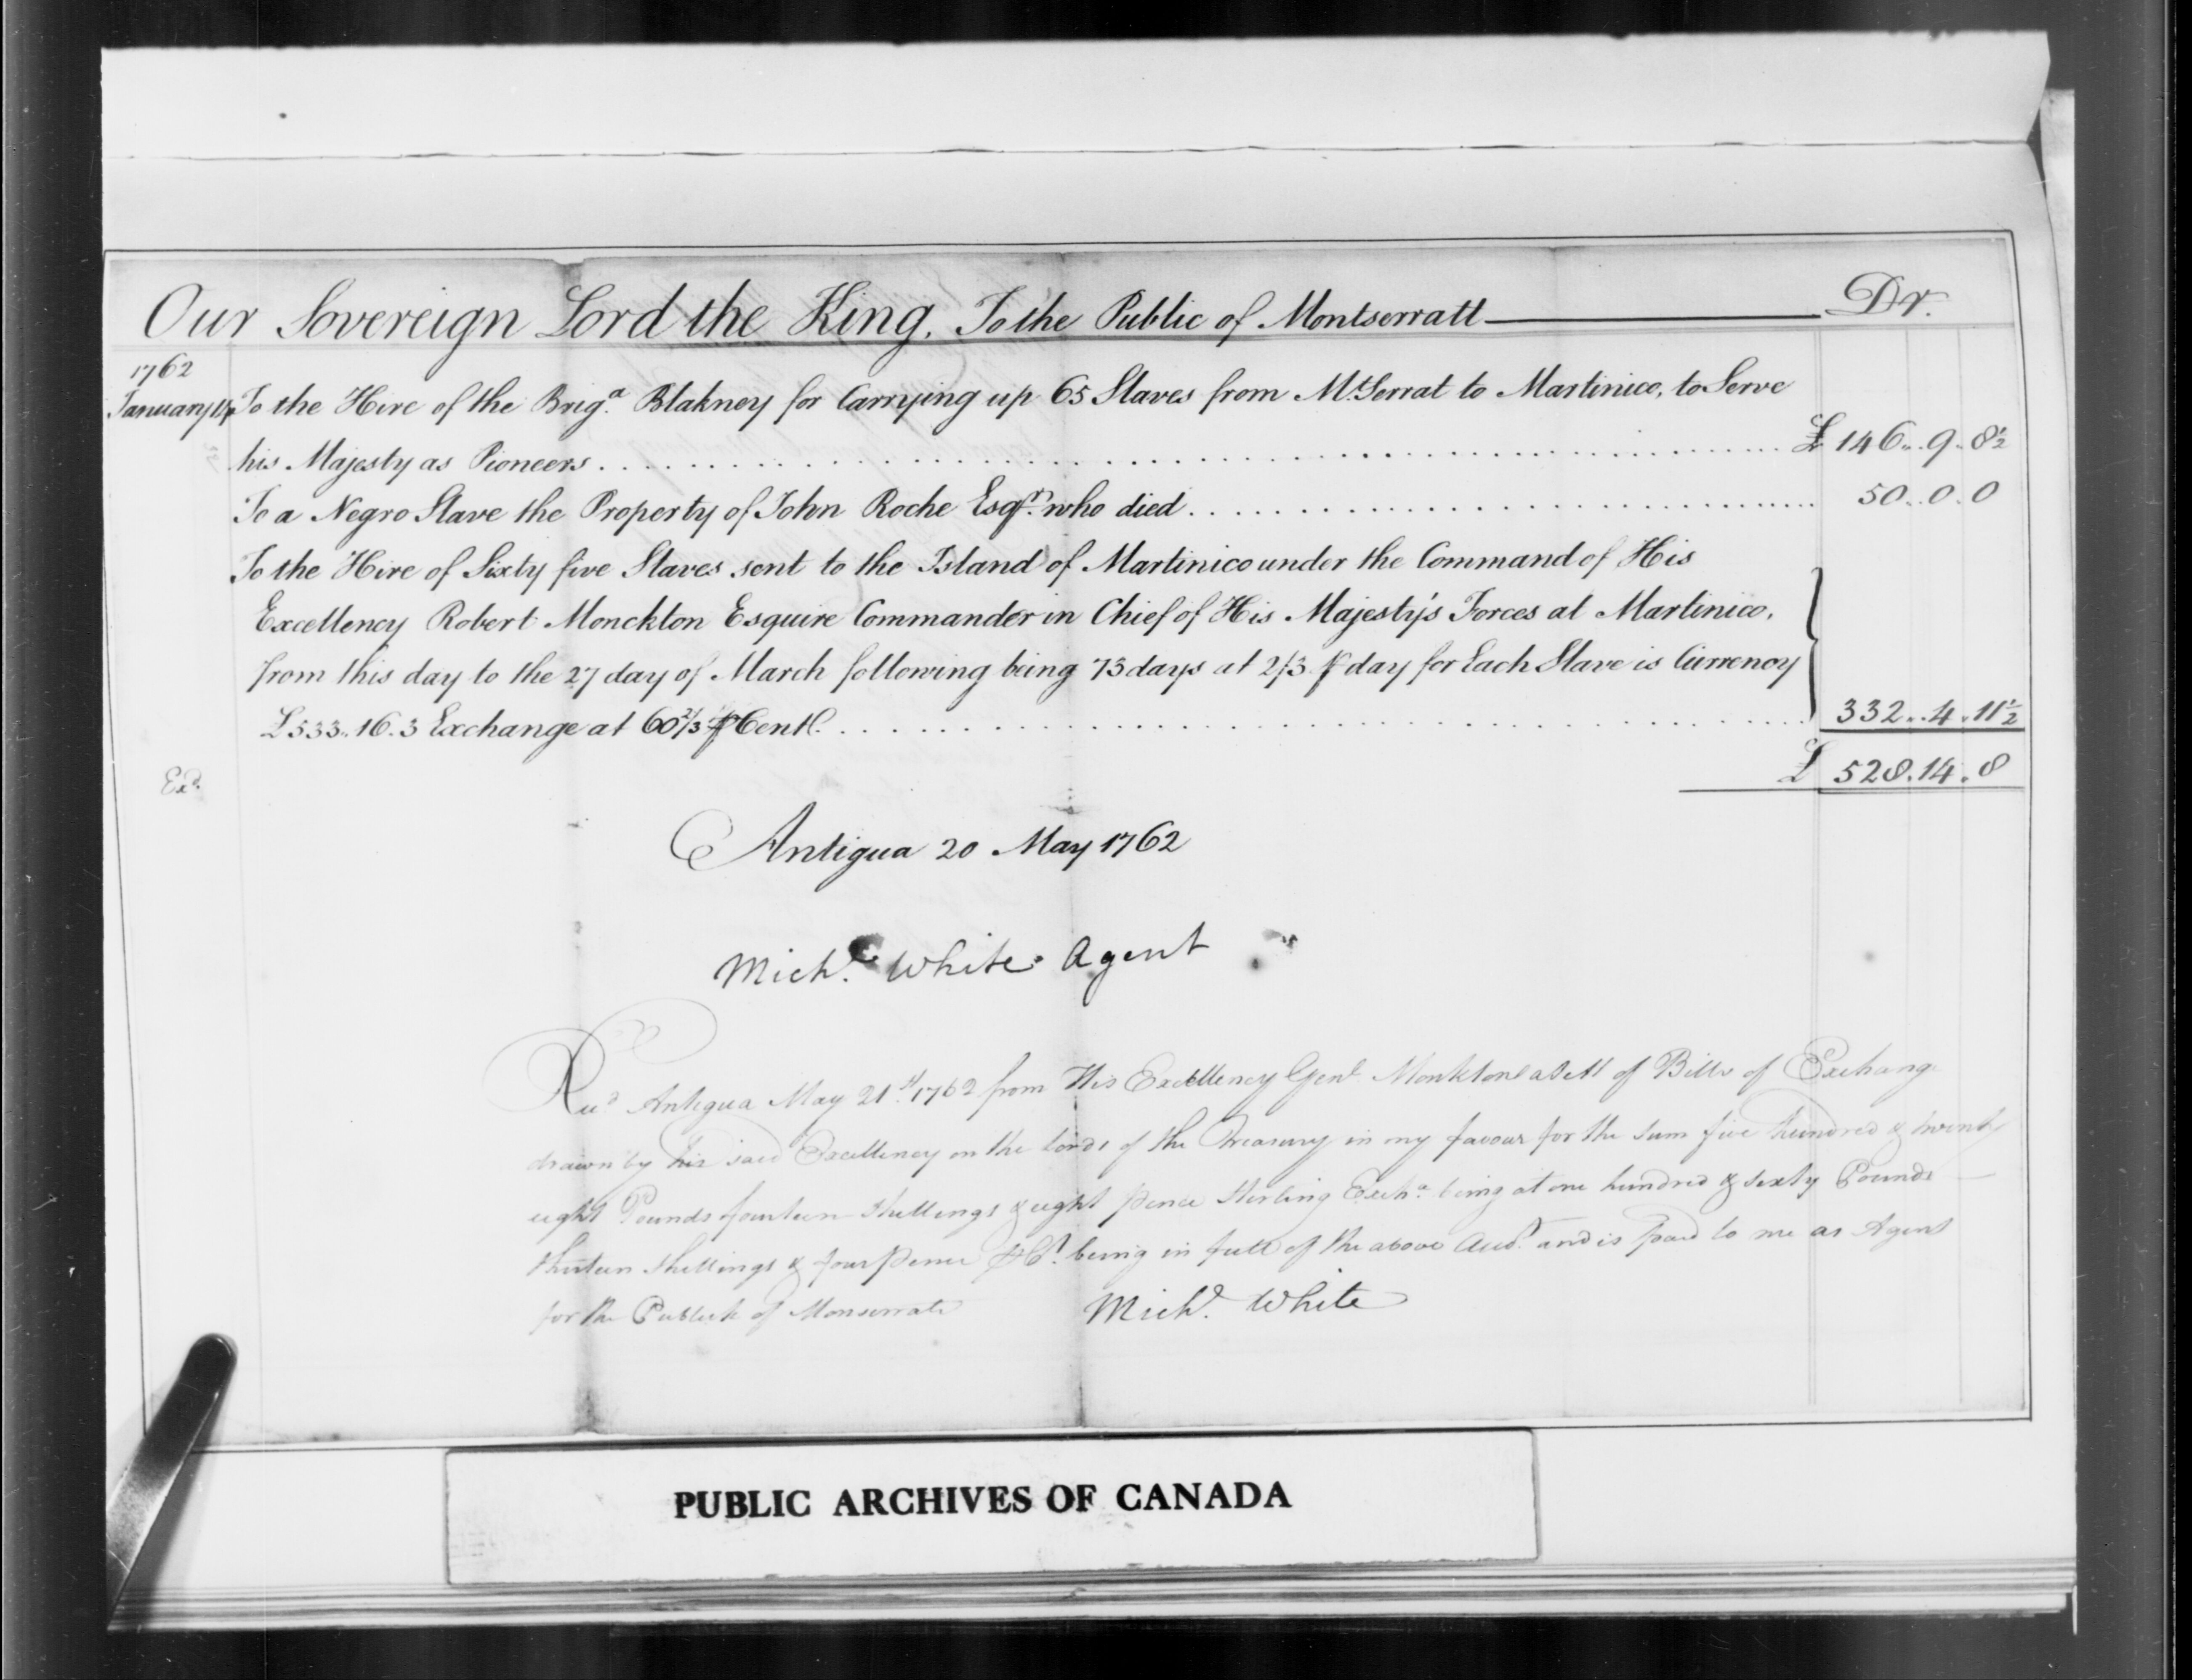 Our Sovereign Lord the King. To the Public of Montserratt Dr.
1762
January 14 To the Hire of the Brig.a Blakney for Carrying up 65 Slaves from Mt.Serrat to Martinico, to Serve
his Majesty as Pioneers. . . . . . . . . . . . . . . . . . . . £ 146.. 9.. 8½
To a Negro Slave the Property of John Roche Esqr. who died. . . . . . . . . . . . . . . 50.. 0.. 0
To the Hire of Sixty five Slaves sent to the Island of Martinico under the Command of His
Excellency Robert Monckton Esquire Commander in Chief of His Majesty's Forces at Martinico,
from this day to the 27 day of March following being 73 days at 2/3 ⅌ day for Each Slave is Currency
£533.. 16.. 3 Exchange at 60⅔ ⅌ Cent. . . . . . . . . . . . . . . 332.. 4.. 11½
Exd. £ 528.. 14.. 8
Antigua 20 May 1762
Michl. White Agent
Recd Antigua May 21st. 1762 from His Excellency Genl Monkton a Sett of Bills of Exchange
drawn by his said Excellency on the Lords of the Treasury in my favour for the sum five hundred & twenty
eight Pounds fourteen Shillings & eight pence Sterling Excha. being at one hundred & sixty Pounds
thirteen Shillings & four pence ⅌ Ct. being in full of the above Acct. and is paid to me as Agent
for the Publick of Monserrate Michl. White
PUBLIC ARCHIVES OF CANADA